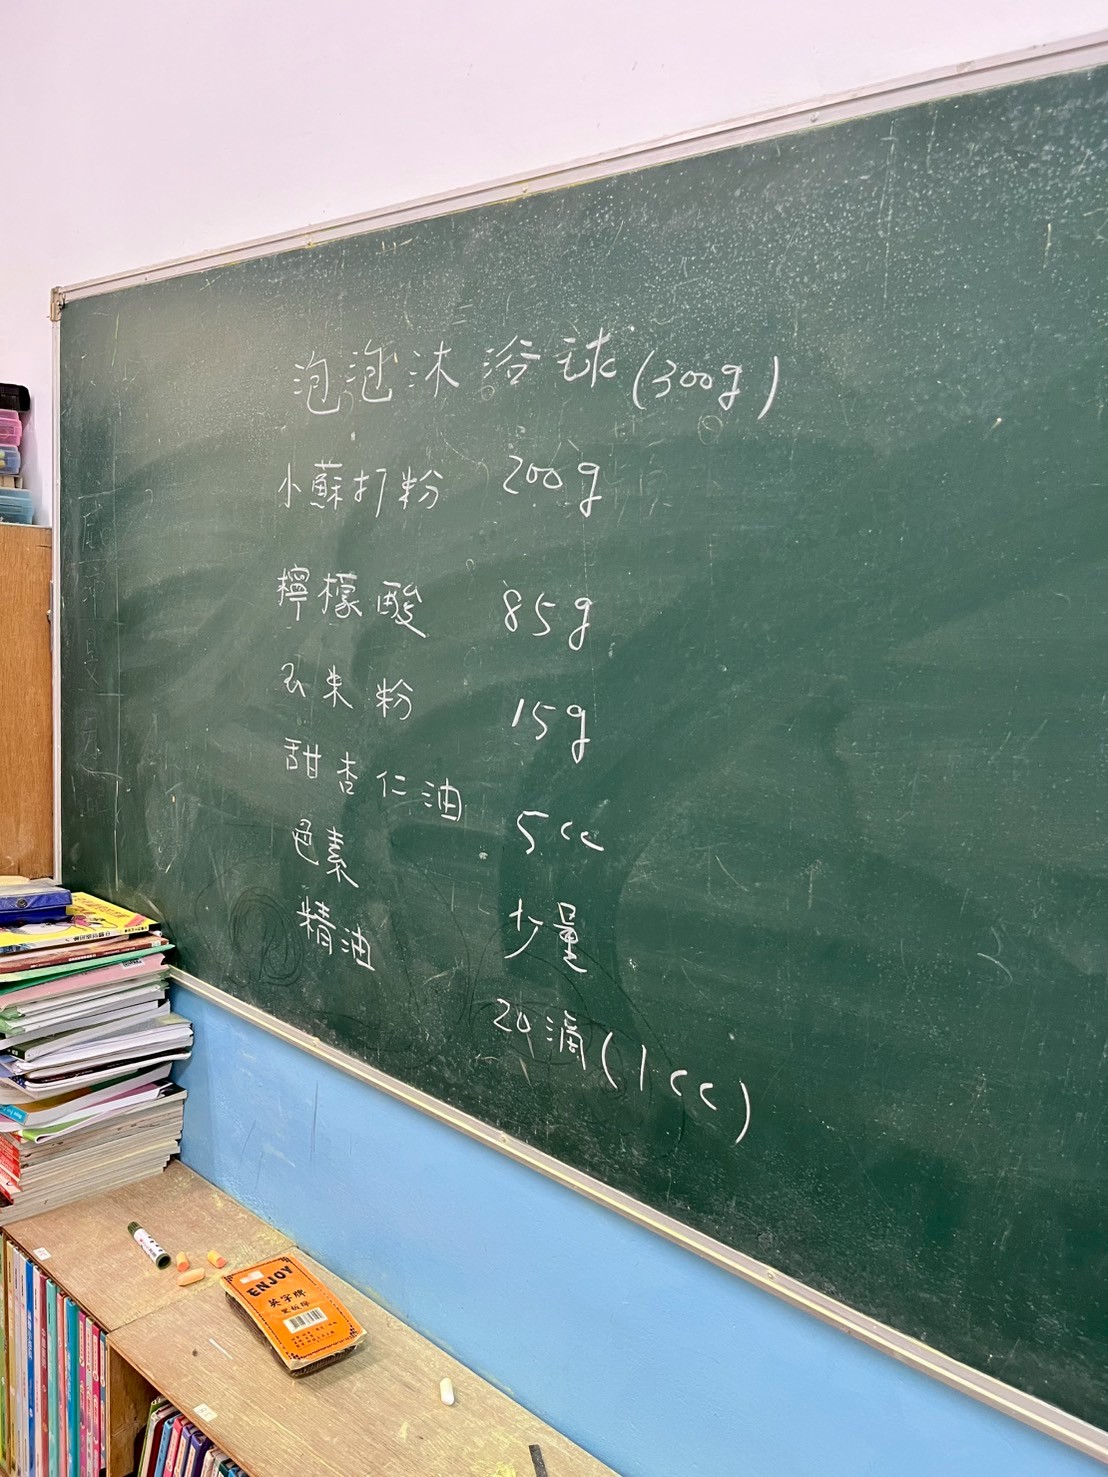 泡泡沐浴球(300g)
小蘇打粉 200g
檸檬酸 85g
玉米粉 15g
甜杏仁油 5cc
色素 少量
精油 20滴(1cc)
ENJOY
英字牌
黑板擦